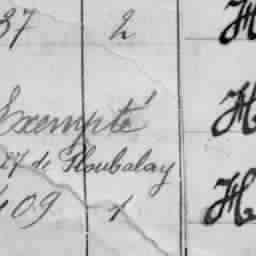 37 2 H
Exempté H
27 de Ploubalay
409 1 H